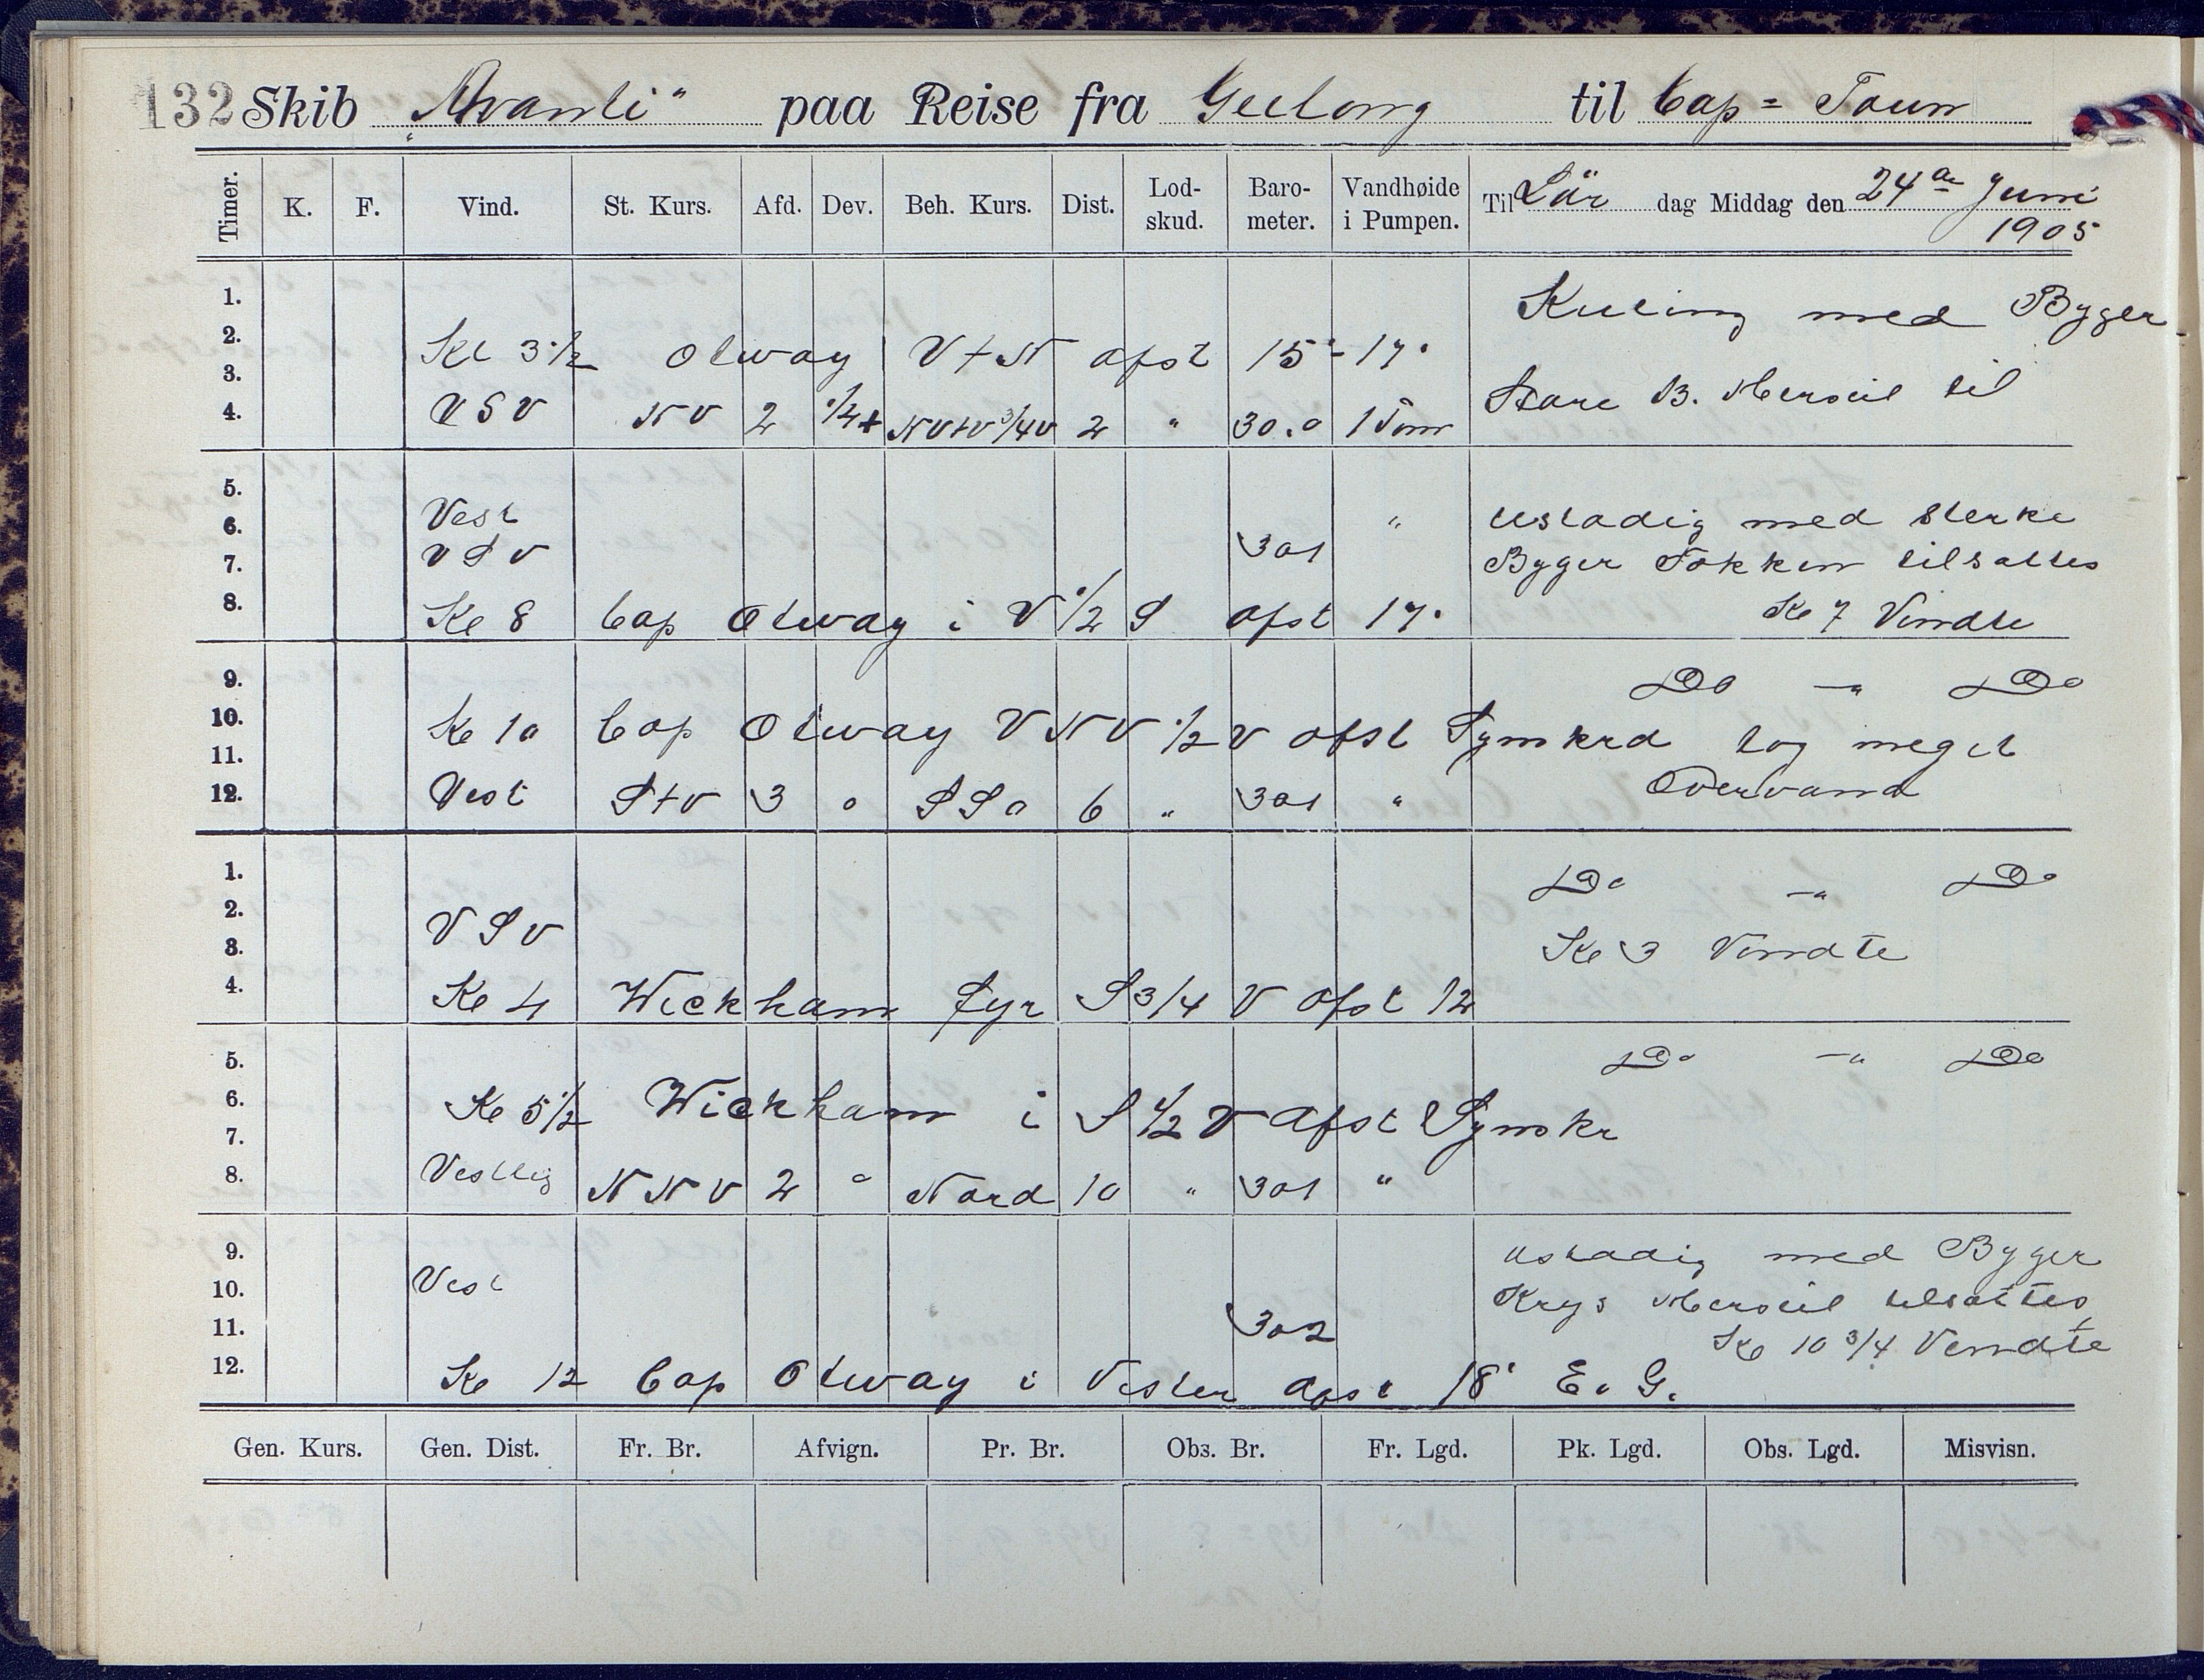 132 Skib "Avanti" paa Reise fra Geelong til Cap = Town
Timer. K. F. Vind. St. Kurs. Afd. Dev. Beh. Kurs. Dist. Lod-skud. Baro-meter. Vandhøide i Pumpen. Til Lör dag Middag den 24de Juni 1905
1. Kuling med Byger
2. Kl 3½ Otway V t N afst 15' - 17'
3. Store B. Merseil til
4. VSV NV 2 ½+ NVtV ¾ V 2 " 30.0 1 Tom
5.
6. Vest " Ustadig med sterke
7. VSV 301 Byger Fokken tilsattes
8. Kl 8 Cap Otway i V ½ S afst 17' Kl 7 Vendte
9. Do —" Do
10. Kl 10 Cap Otway VNV ½ V afst Synskrd tog meget
11. Overvand
12. Vest StV 3 0 SSO 6 " 301 "
1. Do —" Do
2. VSV
3. Kl 3 Vendte
4. Kl 4 Wickham fyr S ¾ V afst 12
5. Do —" Do
6. Kl 5½ Wickham i S ½ V afst Synskr
7.
8. Vestlig NNV 2 0 Nord 10 " 301 "
9. Ustadig med Byger
10. Vest Krys Merseil tilsattes
11. 302 Kl 10 ¾ Vendte
12. Kl 12 Cap Otway i Vesten afst 18' E. G.
Gen. Kurs. Gen. Dist. Fr. Br. Afvign. Pr. Br. Obs. Br. Fr. Lgd. Pk. Lgd. Obs. Lgd. Misvisn.